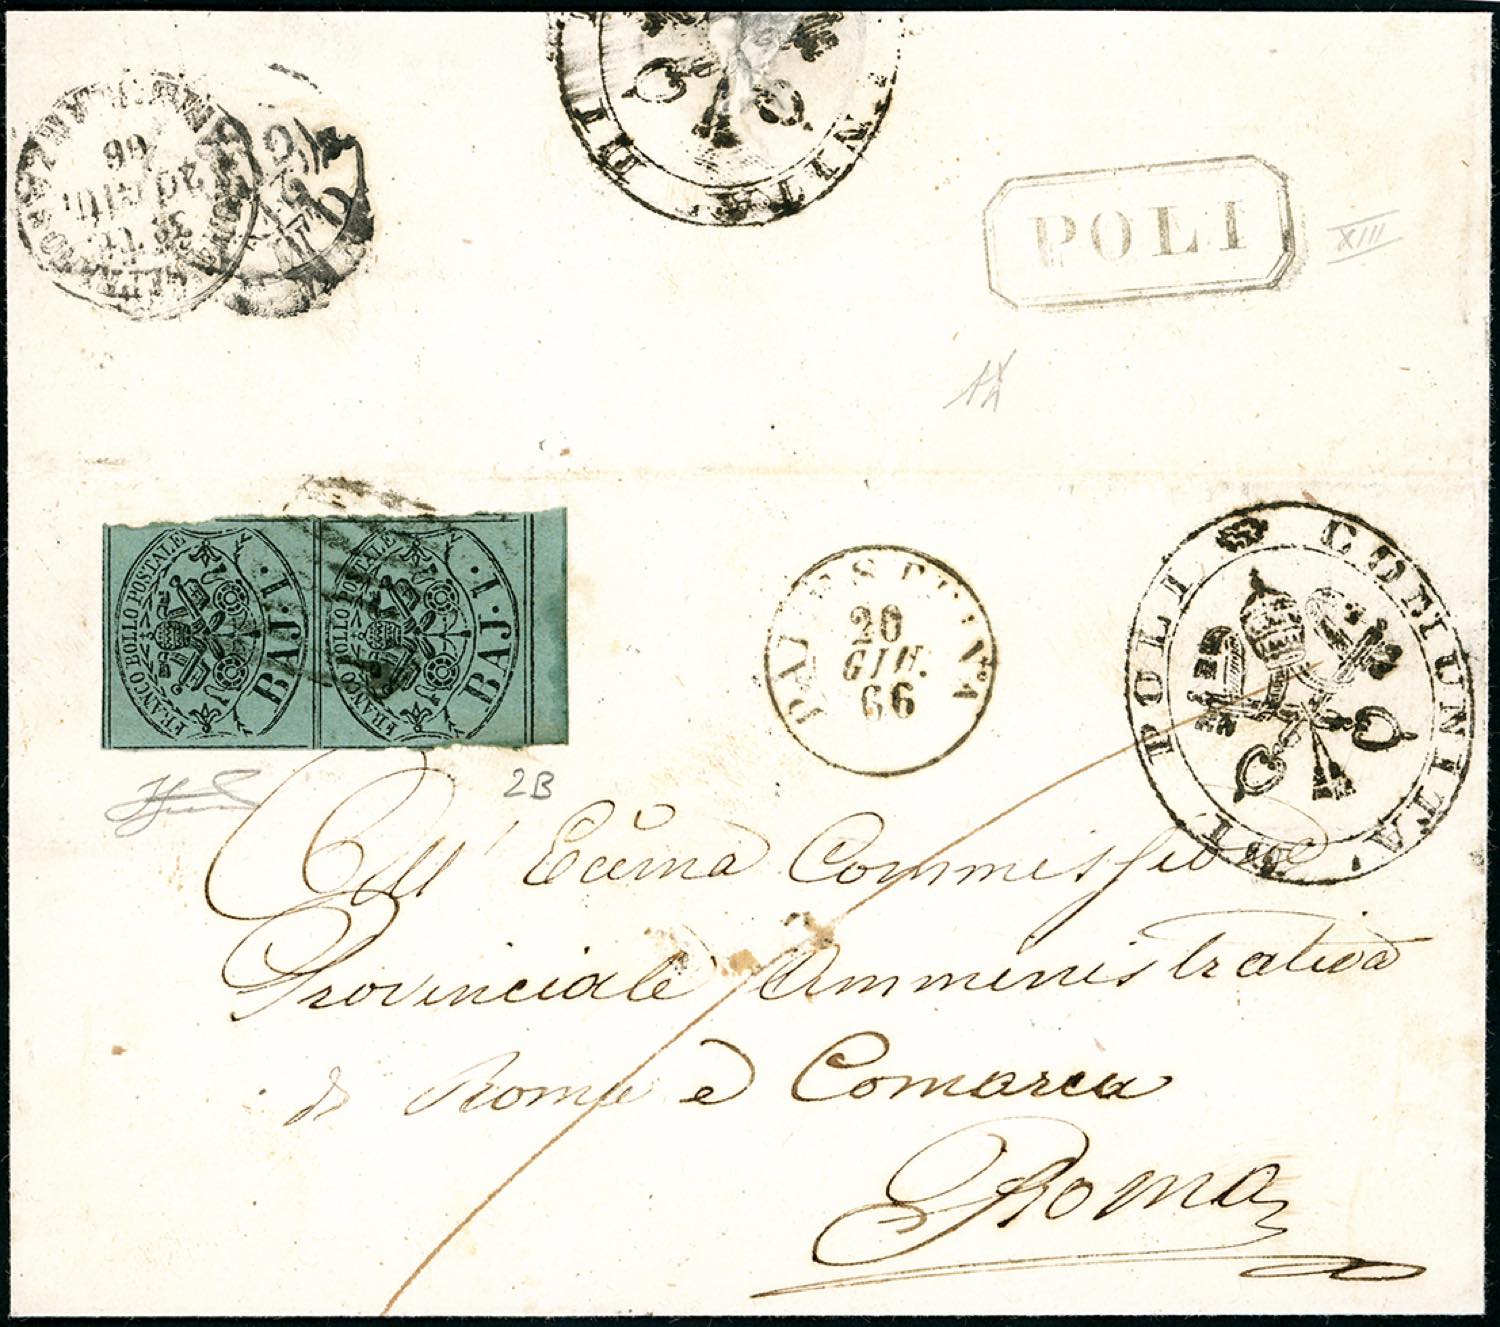 POLI
XIII
FRANCO BOLLO POSTALE
BAJ. 1
FRANCO BOLLO POSTALE
BAJ. 1
2B
PALESTRINA
20
GIU.
66
COMUNITA' DI POLI
DI
NITA'
66
20 GIU.
All' Eccma Commissione
Provinciale Amministrativa
di Roma e Comarca
Roma